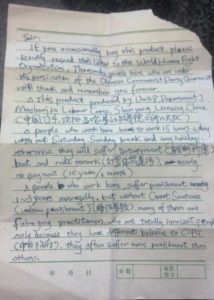 Sir:
If you occasionally buy this product, please
kindly resend this letter to the World Human Right
Organization. Thousands people here who are under
the persicution of the Chinese Communist Party Government
will thank and remember you forever.
This product produced by Unit 8, Department 2
Masanjia Labour Camp, Shenyang, Liaoning, China
(中国辽宁沈阳马三家劳动教养院二所八大队)
People who work here have to work 15 hours a day
with out Saturday, Sunday break and any holidays
otherwise, they will suffer torturement
but and rude remark nearly
no payment (10 yuan/month)
People who work here, suffer punishment
1~3 years averagely, but without Court Sentence
many of them are
Falun gong practitioner, who are totally innocent people
only because they have different believe to CCPG
they often suffer more punishment than
others.
年 月 日